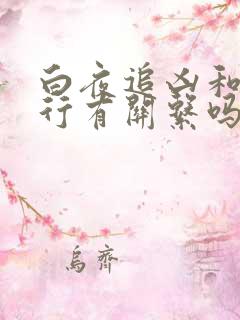 白夜追凶和
行有關繫吗
烏齊